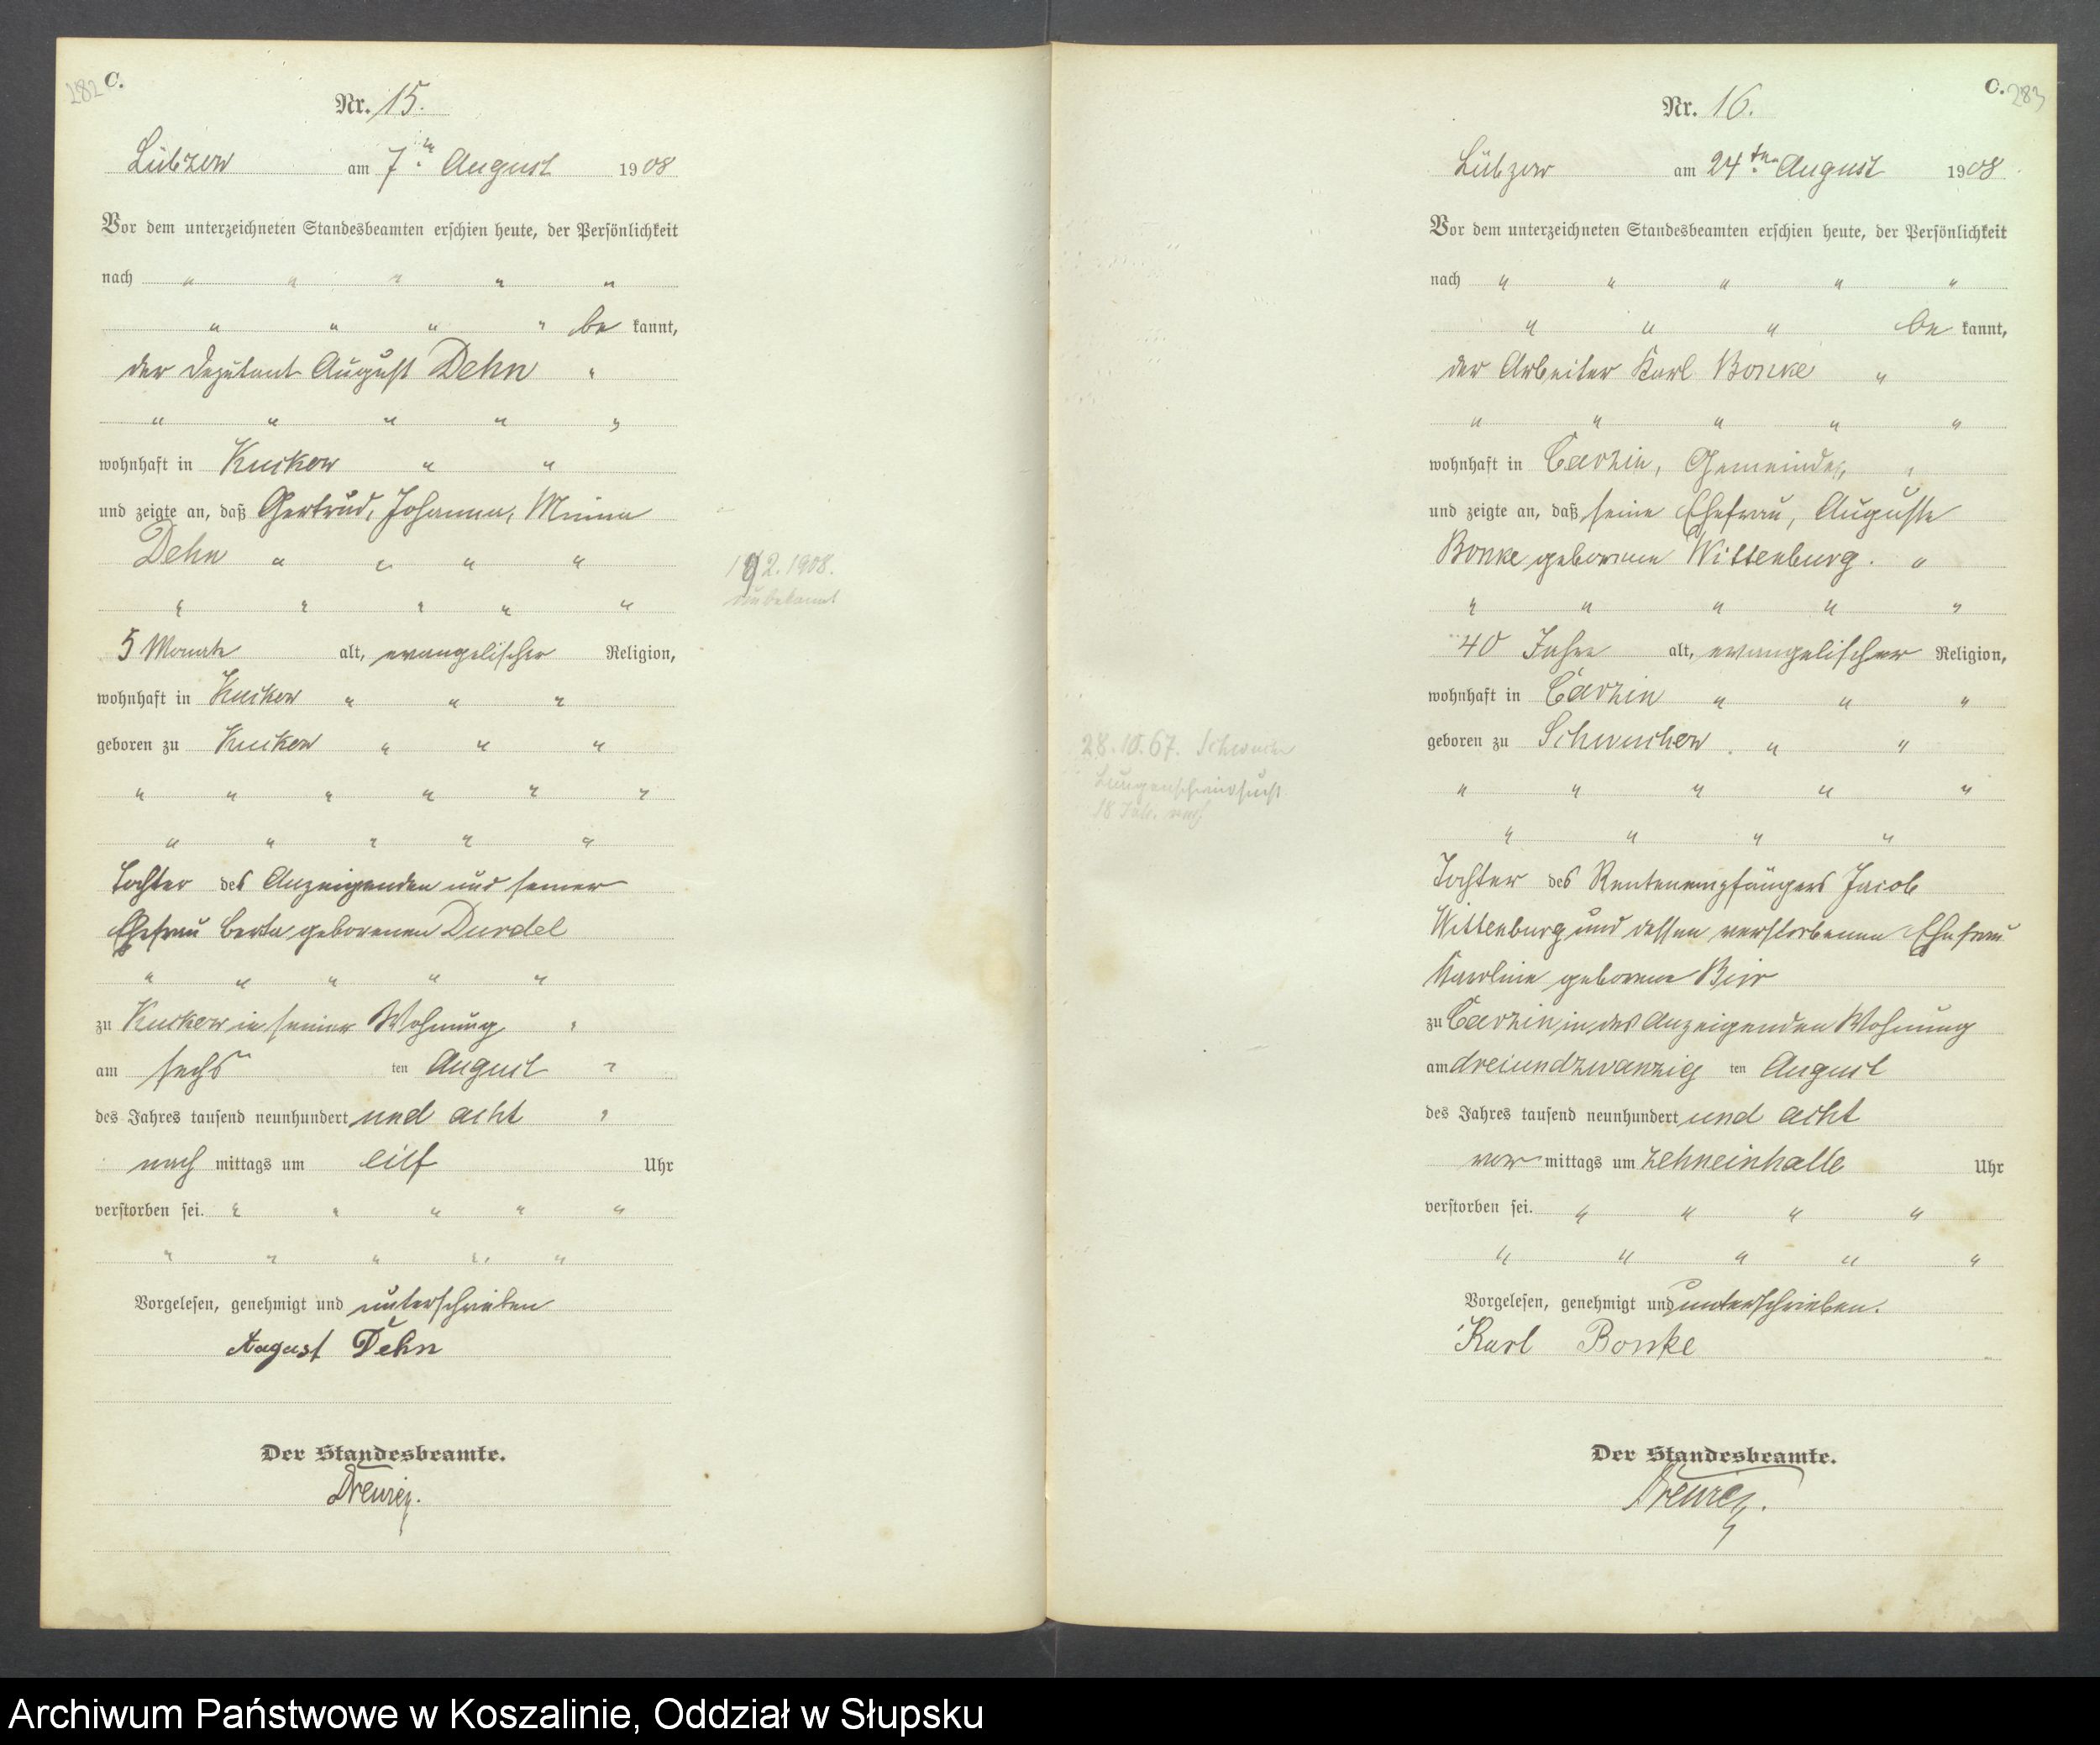 282 C.
Nr. 15.
Lübzow am 7ten August 1908
Vor dem unterzeichneten Standesbeamten erschien heute, der Persönlichkeit
nach " " " " "
" " " " be kannt,
der Deputant August Dehn "
" " " " "
wohnhaft in Kuskow " "
und zeigte an, daß Gertrud, Johanna, Minna
Dehn " " " "
" " " " "
5 Monate alt, evangelischer Religion,
wohnhaft in Kuskow " " "
geboren zu Kuskow " " "
" " " " " "
" " " " "
Tochter des Anzeigenden und seiner
Ehefrau Berta geborenen Durdel
" " " " "
zu Kuskow in seiner Wohnung "
am sechs ten August "
des Jahres tausend neunhundert und acht "
nach mittags um eilf Uhr
verstorben sei. " " " " "
" " " " "
Vorgelesen, genehmigt und unterschrieben
August Dehn
Der Standesbeamte.
2.1908.
unbekannt
C. 283
Nr. 16.
Lübzow am 24ten August 1908
Vor dem unterzeichneten Standesbeamten erschien heute, der Persönlichkeit
nach " " " " "
" " " be kannt,
der Arbeiter Karl Bonke "
" " " " "
wohnhaft in Carzin, Gemeinde, "
und zeigte an, daß seine Ehefrau, Auguste
Bonke geborene Wittenburg. "
" " " " "
40 Jahre alt, evangelischer Religion,
wohnhaft in Carzin " " "
geboren zu Schwuchow. " "
" " " " "
" " " "
Tochter des Rentenempfängers Jacob
Wittenburg und dessen verstorbenen Ehefrau
Karoline geborene Birr
zu Carzin in des Anzeigenden Wohnung
am dreiundzwanzig ten August
des Jahres tausend neunhundert und acht
vor mittags um zehneinhalb Uhr
verstorben sei. " " " "
" " " " "
Vorgelesen, genehmigt und unterschrieben.
Karl Bonke
Der Standesbeamte.
28.10.67.
Lungenschwindsucht
Archiwum Państwowe w Koszalinie, Oddział w Słupsku